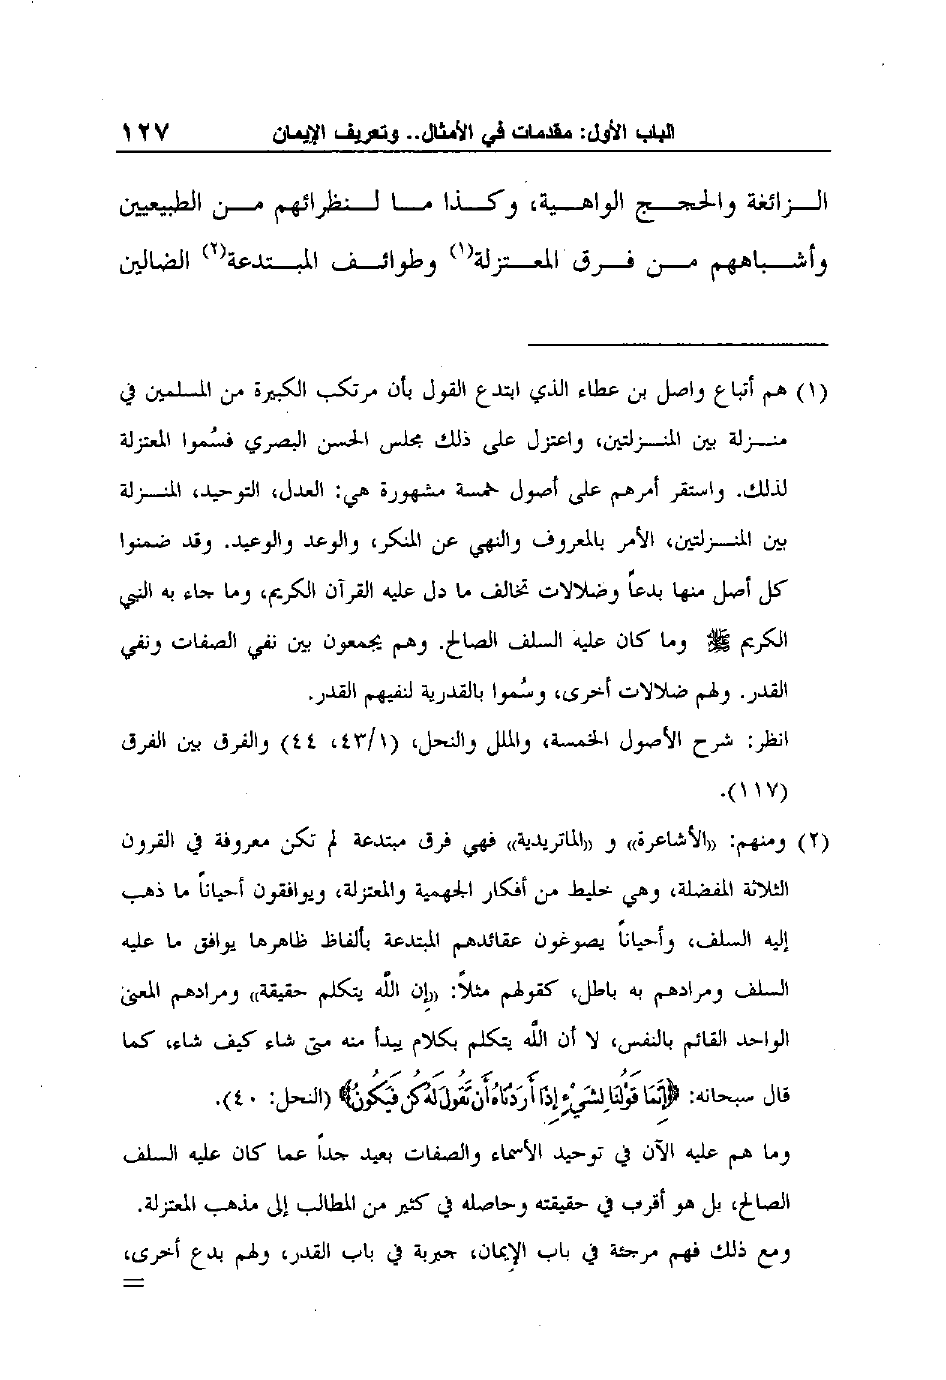 الباب الأول: مقدمات في الأمثال.. وتعريف الإيمان ١٢٧
الزائغة والحجج الواهية، وكذا ما لنظرائهم من الطبيعيين
وأشباههم من فرق المعتزلة(١) وطوائف المبتدعة(٢) الضالين
(١) هم أتباع واصل بن عطاء الذي ابتدع القول بأن مرتكب الكبيرة من المسلمين في
منزلة بين المنزلتين، واعتزل على ذلك مجلس الحسن البصري فسُموا المعتزلة
لذلك. واستقر أمرهم على أصول خمسة مشهورة هي: العدل، التوحيد، المنزلة
بين المنزلتين، الأمر بالمعروف والنهي عن المنكر، والوعد والوعيد. وقد ضمنوا
كل أصل منها بدعاً وضلالات تخالف ما دل عليه القرآن الكريم، وما جاء به النبي
الكريم ﷺ وما كان عليه السلف الصالح. وهم يجمعون بين نفي الصفات ونفي
القدر. ولهم ضلالات أخرى، وسُموا بالقدرية لنفيهم القدر.
انظر: شرح الأصول الخمسة، والملل والنحل، (٤٣/١، ٤٤) والفرق بين الفرق
(١١٧).
(٢) ومنهم: «الأشاعرة» و «الماتريدية» فهي فرق مبتدعة لم تكن معروفة في القرون
الثلاثة المفضلة، وهي خليط من أفكار الجهمية والمعتزلة، ويوافقون أحياناً ما ذهب
إليه السلف، وأحياناً يصوغون عقائدهم المبتدعة بألفاظ ظاهرها يوافق ما عليه
السلف ومرادهم به باطل، كقولهم مثلاً: «إن الله يتكلم حقيقة» ومرادهم المعنى
الواحد القائم بالنفس، لا أن الله يتكلم بكلام يبدأ منه متى شاء كيف شاء، كما
قال سبحانه: ﴿إِنَّمَا قَوْلُنَا لِشَيْءٍ إِذَا أَرَدْنَاهُ أَن نَّقُولَ لَهُ كُن فَيَكُونُ﴾ (النحل: ٤٠).
وما هم عليه الآن في توحيد الأسماء والصفات بعيد جداً عما كان عليه السلف
الصالح، بل هو أقرب في حقيقته وحاصله في كثير من المطالب إلى مذهب المعتزلة.
ومع ذلك فهم مرجئة في باب الإيمان، جبرية في باب القدر، ولهم بدع أخرى،
=